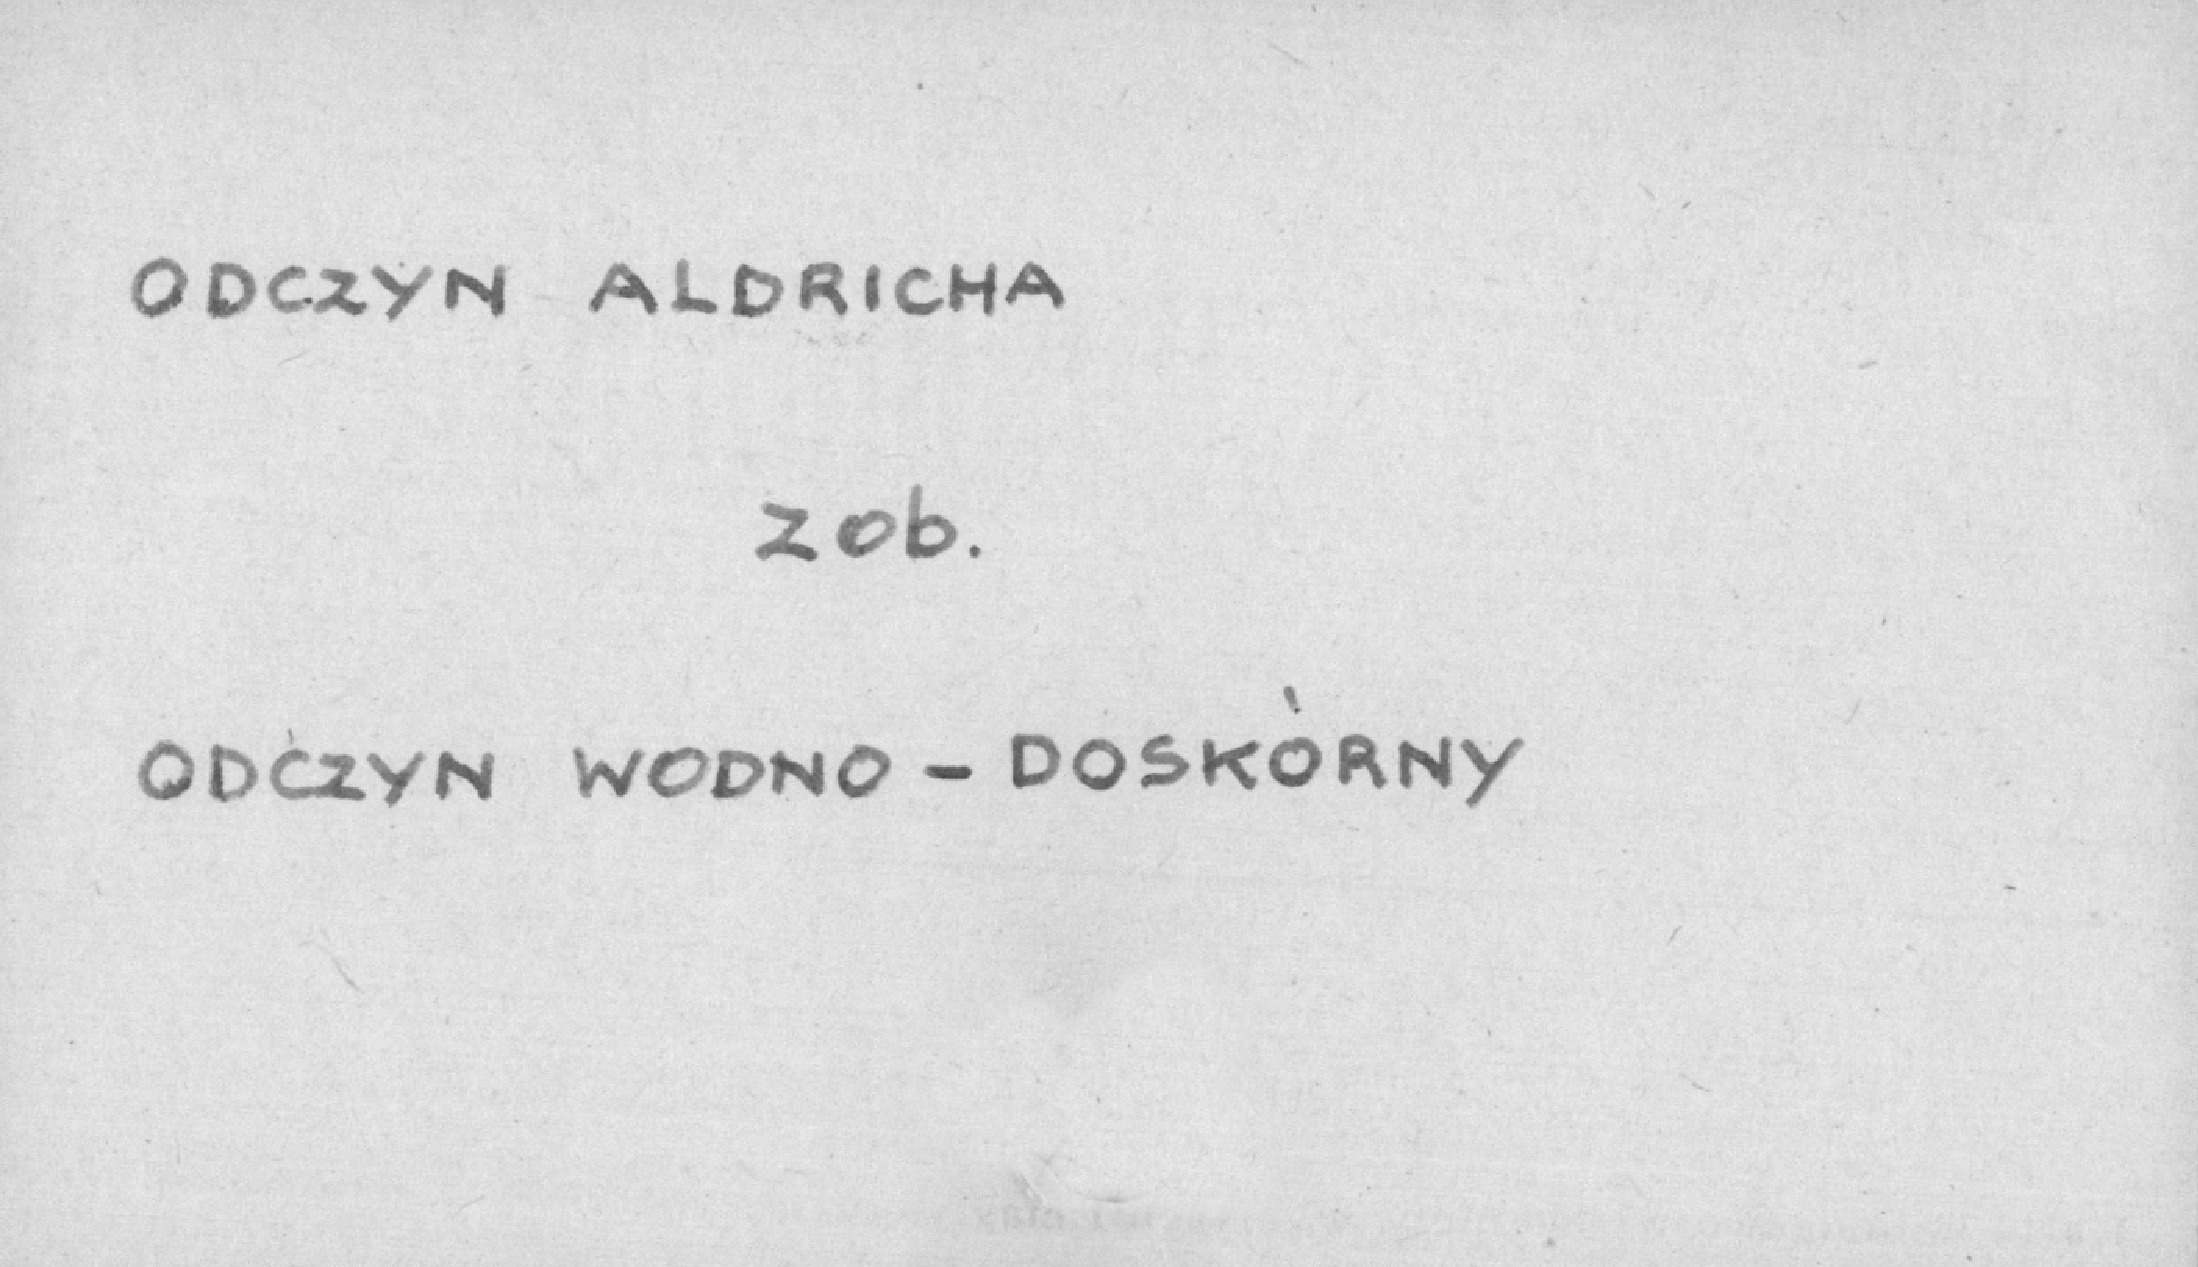 ODCZYN ALDRICHA
zob.
ODCZYN WODNO - DOSKÓRNY